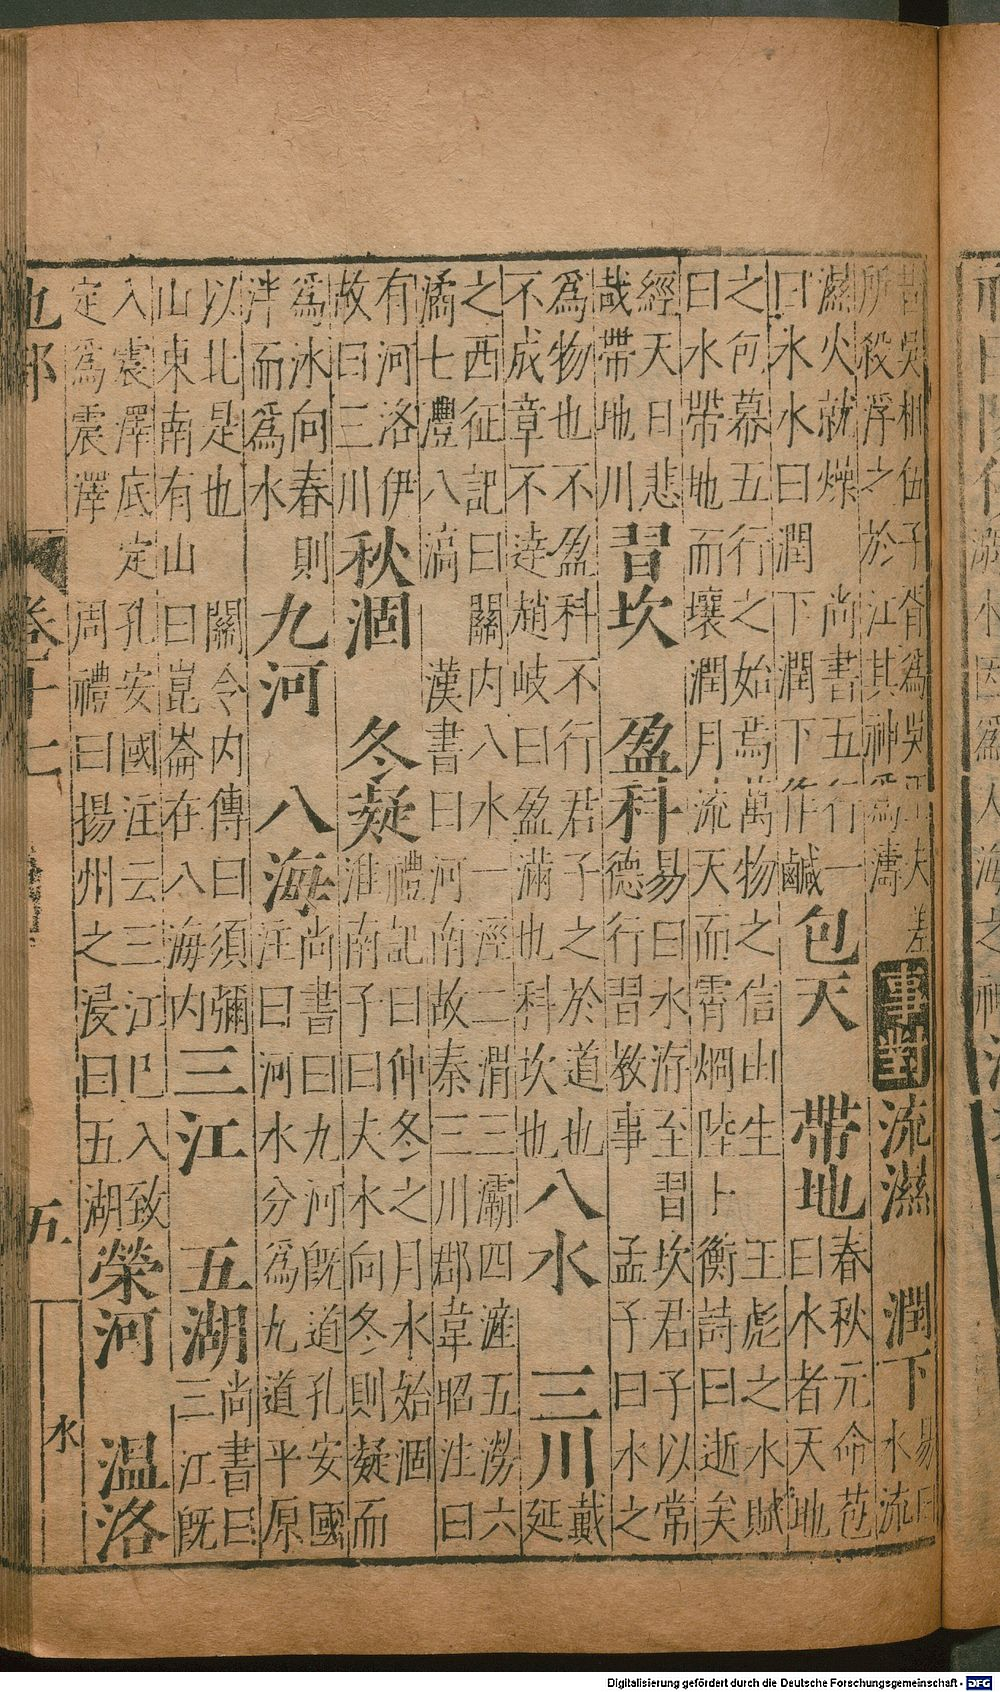 昔吳相伍子胥爲吳王夫差
所殺浮之於江其神爲濤
事對
流濕 潤下
易曰
水流
濕火就燥 尚書五行一
曰水水曰潤下潤下作鹹
包天 帶地
春秋元命苞
曰水者天地
之包幕五行之始焉萬物之信由生 王彪之水賦
曰水帶地而壤潤月流天而霄烱 陸士衡詩曰逝矣
經天日悲
哉帶地川
習坎 盈科
易曰水洊至習坎君子以常
德行習教事 孟子曰水之
爲物也不盈科不行君子之於道也
不成章不達趙岐曰盈滿也科坎也
八水 三川
戴
延
之西征記曰關内八水一涇二渭三灞四滻五澇六
潏七灃八滈 漢書曰河南故秦三川郡韋昭注曰
有河洛伊
故曰三川
秋涸 冬凝
禮記曰仲冬之月水始涸
淮南子曰夫水向冬則凝而
爲冰向春則
泮而爲水
九河 八海
尚書曰九河旣道孔安國
注曰河水分爲九道平原
以北是也 關令内傳曰須彌
山東南有山曰崑崙在八海内
三江 五湖
尚書曰
三江旣
入震澤底定孔安國注云三江已入致
定爲震澤 周禮曰揚州之浸曰五湖
榮河 溫洛
地部 卷十七 五 水
Digitalisierung gefördert durch die Deutsche Forschungsgemeinschaft - DFG